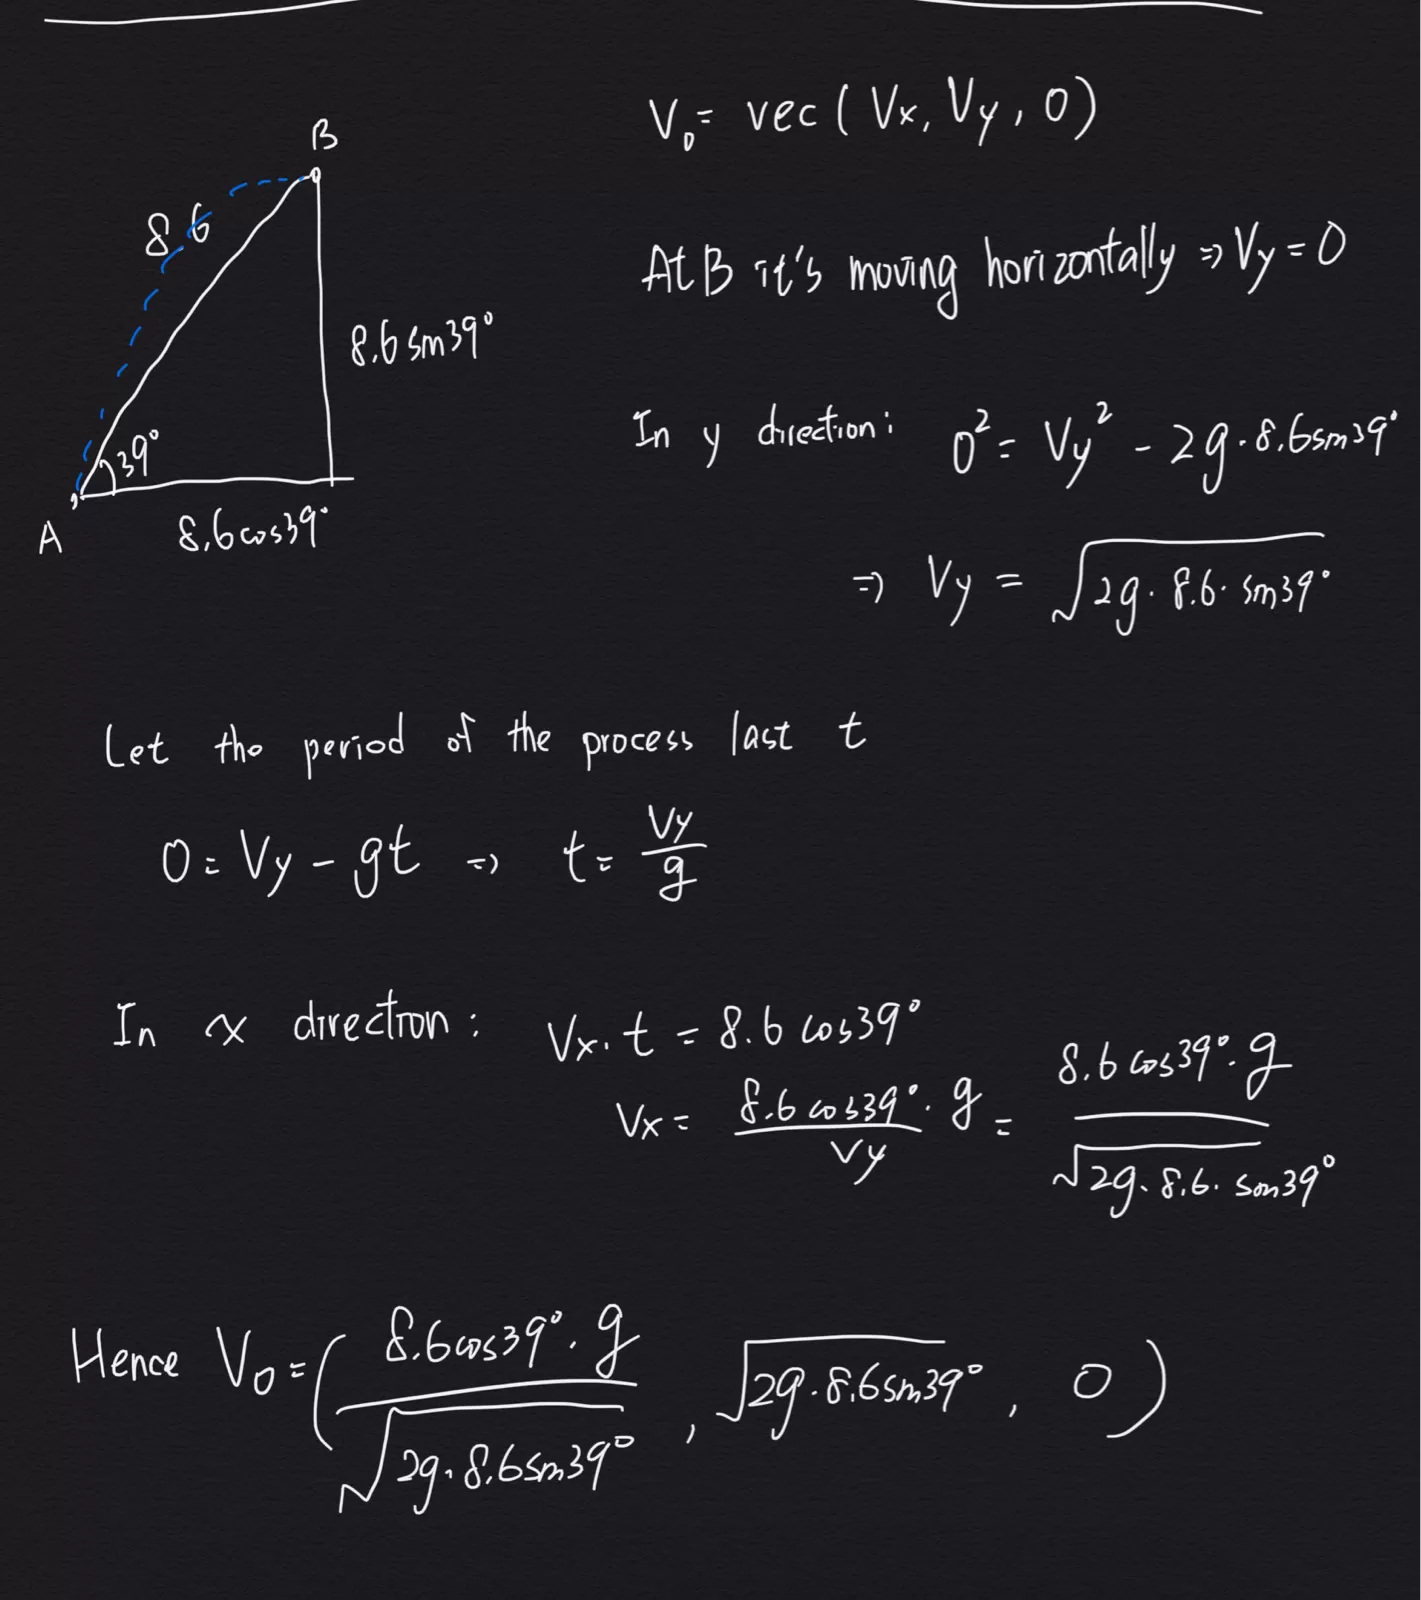 B
8.6
8.6 sin39°
39°
A
8.6cos39°
V₀ = vec( Vx, Vy, 0)
At B it's moving horizontally ⇒ Vy = 0
In y direction: 0² = Vy² - 2g·8.6sin39°
⇒ Vy = √2g·8.6·sin39°
Let the period of the process last t
0 = Vy - gt ⇒ t = Vy/g
In x direction: Vx·t = 8.6 cos39°
Vx = 8.6cos39°/Vy · g = 8.6cos39°·g/√2g·8.6·sin39°
Hence V₀ = (8.6cos39°·g/√2g·8.6sin39°, √2g·8.6sin39°, 0)